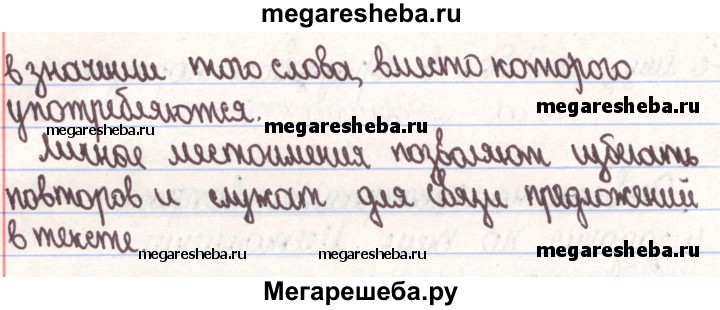 megaresheba.ru
в значении того слова, вместо которого
употребляются.
megaresheba.ru megaresheba.ru megaresheba.ru
Личные местоимения позволяют избегать
повторов и служат для связи предложений
в тексте
megaresheba.ru megaresheba.ru megaresheba.ru
Мегарешеба.ру